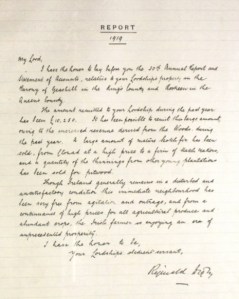 REPORT
1919
My Lord,
I have the honor to lay before you the 50th Annual Report and
Statement of Accounts, relative to your Lordships property in the
Barony of Geashill in the King's County and
County
The amount remitted to your Lordship during the past year
has been £ It has been possible to remit this large amount
owing to the increased revenue derived from the Woods during
the past year. A large amount of
sold, at a high price to a firm of
and a quantity of the thinnings from young plantations
has been sold for pitwood.
Though Ireland generally remains in a disturbed and
unsatisfactory condition this immediate neighbourhood has
been very free from agitation and outrage, and from a
continuance of high prices for all agricultural produce and
abundant crops, the Irish farmer is enjoying an era of
unprecedented prosperity.
I have the honor to be,
Your Lordships obedient servant,
Reginald Digby